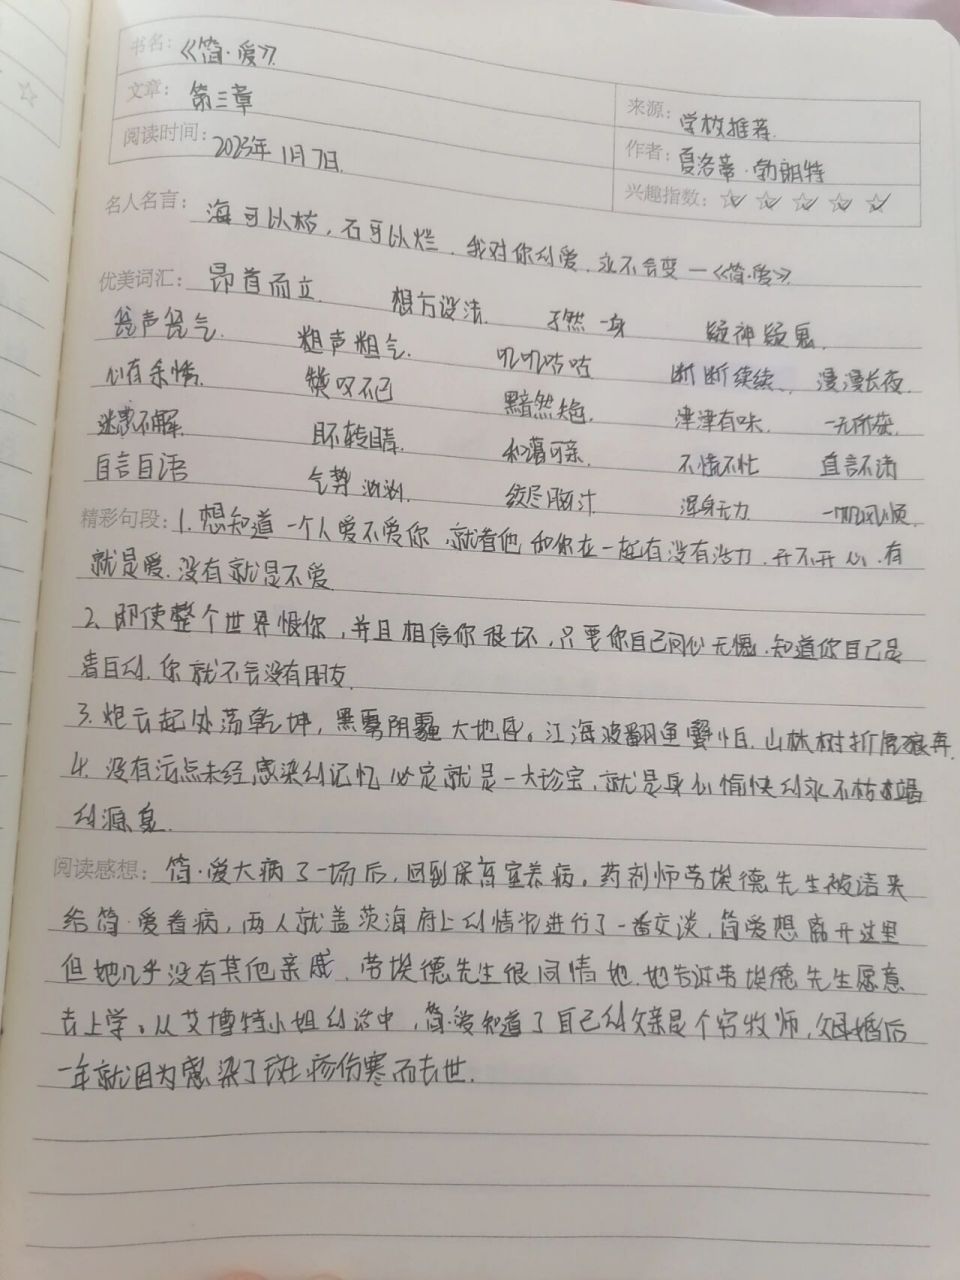 书名: 《简·爱》
文章: 第三章
来源: 学校推荐
阅读时间: 2023年1月7日
作者: 夏洛蒂·勃朗特
兴趣指数: ☆☆☆☆☆
名人名言: 海可以枯,石可以烂,我对你的爱,永不会变—《简·爱》
优美词汇: 昂首而立 想方设法 孑然一身 疑神疑鬼
瓮声瓮气 粗声粗气 叽叽咕咕 断断续续 漫漫长夜
心有余悸 赞叹不已 黯然失色 津津有味 一无所获
迷惑不解 目不转睛 和蔼可亲 不慌不忙 直言不讳
自言自语 气势汹汹 绞尽脑汁 浑身无力 一帆风顺
精彩句段: 1.想知道一个人爱不爱你,就看他和你在一起有没有活力,开不开心,有
就是爱,没有就是不爱
2.即使整个世界恨你,并且相信你很坏,只要你自己问心无愧,知道你自己是
清白的,你就不会没有朋友
3.炮云起处荡乾坤,黑雾阴霾大地昏。江海波翻鱼蟹怕,山林树折虎狼奔
4.没有污点未经感染的记忆必定就是一大珍宝,就是身心愉快的永不枯竭
的源泉
阅读感想: 简·爱大病了一场后,回到保育室养病,药剂师劳埃德先生被请来
给简·爱看病,两人就盖茨海府上的情况进行了一番交谈,简爱想离开这里
但她几乎没有其他亲戚,劳埃德先生很同情她,她告诉劳埃德先生愿意
去上学。从艾博特小姐的话中,简·爱知道了自己的父亲是个穷牧师,父母婚后
一年就因为感染了斑疹伤寒而去世.